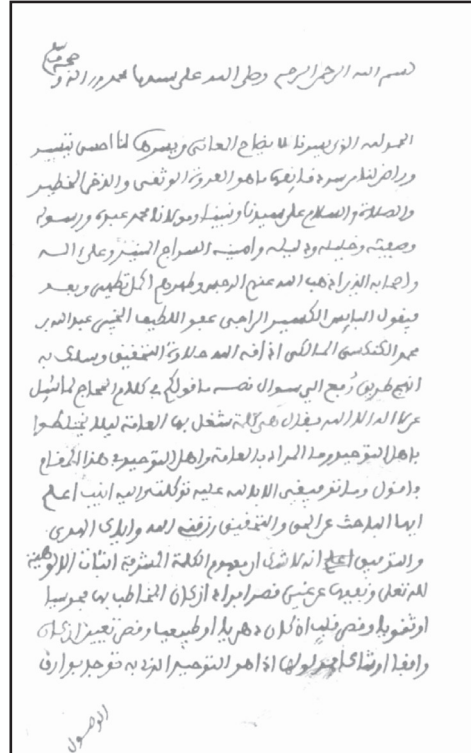 بسم الله الرحمن الرحيم وصلى الله على سيدنا محمد وءاله وصحبه وسلم
الحمد لله الذي يسرنا لا يضاح العاني ويسرها لنا احسن تيسير
وراض لنا من سرد فايقها ما هو العروة الوثقى والذخر الخطير
والصلاة والسلام على سيدنا ونبينا ومولانا محمد عبده ورسوله
وصفيه وخليله ودليله وامينه السراج المنير وعلى ءاله
واصحابه الذين اذهب الله عنهم الرجس وطهرهم اكمل تطهير وبعد
فيقول البايس الكسير الراجي عفو اللطيف الخبير عبد الله بن
محمد الكنكسي المالكي اذاقه الله حلاوة التحقيق وسلك به
انهج طريق رفع الي سوال نصه ما قولكم في كلام الحجاج لما سيل
عن لا اله الا الله فقال هي كلمة شغل بها العامة ليلا يختلطوا
باهل التوحيد وما المراد بالعامة واهل التوحيد في هذا المقام
واقول وما توفيقي الا بالله عليه توكلت واليه انيب اعلم
ايها الباحث عن الحق والتحقيق رزقني الله واياك الهدى
والتوفيق انه لا شك ان مفهوم الكلمة المشرفة اثبات الالوهية
لله تعلى ونفيها عن غيره قصر افراد ان كان المخاطب بها مجوسيا
او ثنويا وقصر قلب ان كان دهريا او طبيعيا وقصر تعيين ان كان
واقفا او شاكا مدلولها اذا هو التوحيد الذي به توجد بوارق
الوصول